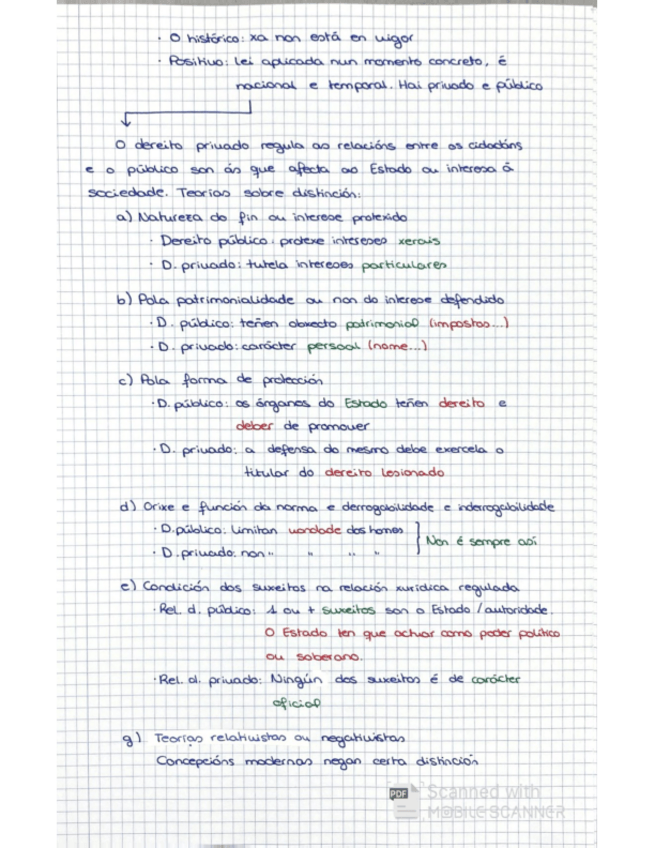 · O histórico: xa non está en vigor
· Positivo: lei aplicada nun momento concreto, é
nacional e temporal. Hai privado e público
O dereito privado regula as relacións entre os cidadáns
e o público son ás que afecta ao Estado ou interesa á
sociedade. Teorías sobre distinción:
a) Natureza do fin ou interese protexido
· Dereito público: protexe intereses xerais
· D. privado: tutela intereses particulares
b) Pola patrimonialidade ou non do interese defendido
· D. público: teñen obxecto patrimonial (impostos...)
· D. privado: carácter persoal (nome...)
c) Pola forma de protección
· D. público: os órganos do Estado teñen dereito e
deber de promover
· D. privado: a defensa do mesmo debe exercela o
titular do dereito lesionado
d) Orixe e función da norma e derrogabilidade e inderrogabilidade
· D. público: Limitan vondade dos homes
· D. privado: non " " " "
Non é sempre así
e) Condición dos suxeitos na relación xurídica regulada
· Rel. d. público: 1 ou + suxeitos son o Estado / autoridade.
O Estado ten que actuar como poder político
ou soberano.
· Rel. d. privado: Ningún dos suxeitos é de carácter
oficial
g) Teorías relativistas ou negativistas
Concepcións modernas negan certa distinción
PDF Scanned with
MOBILE SCANNER